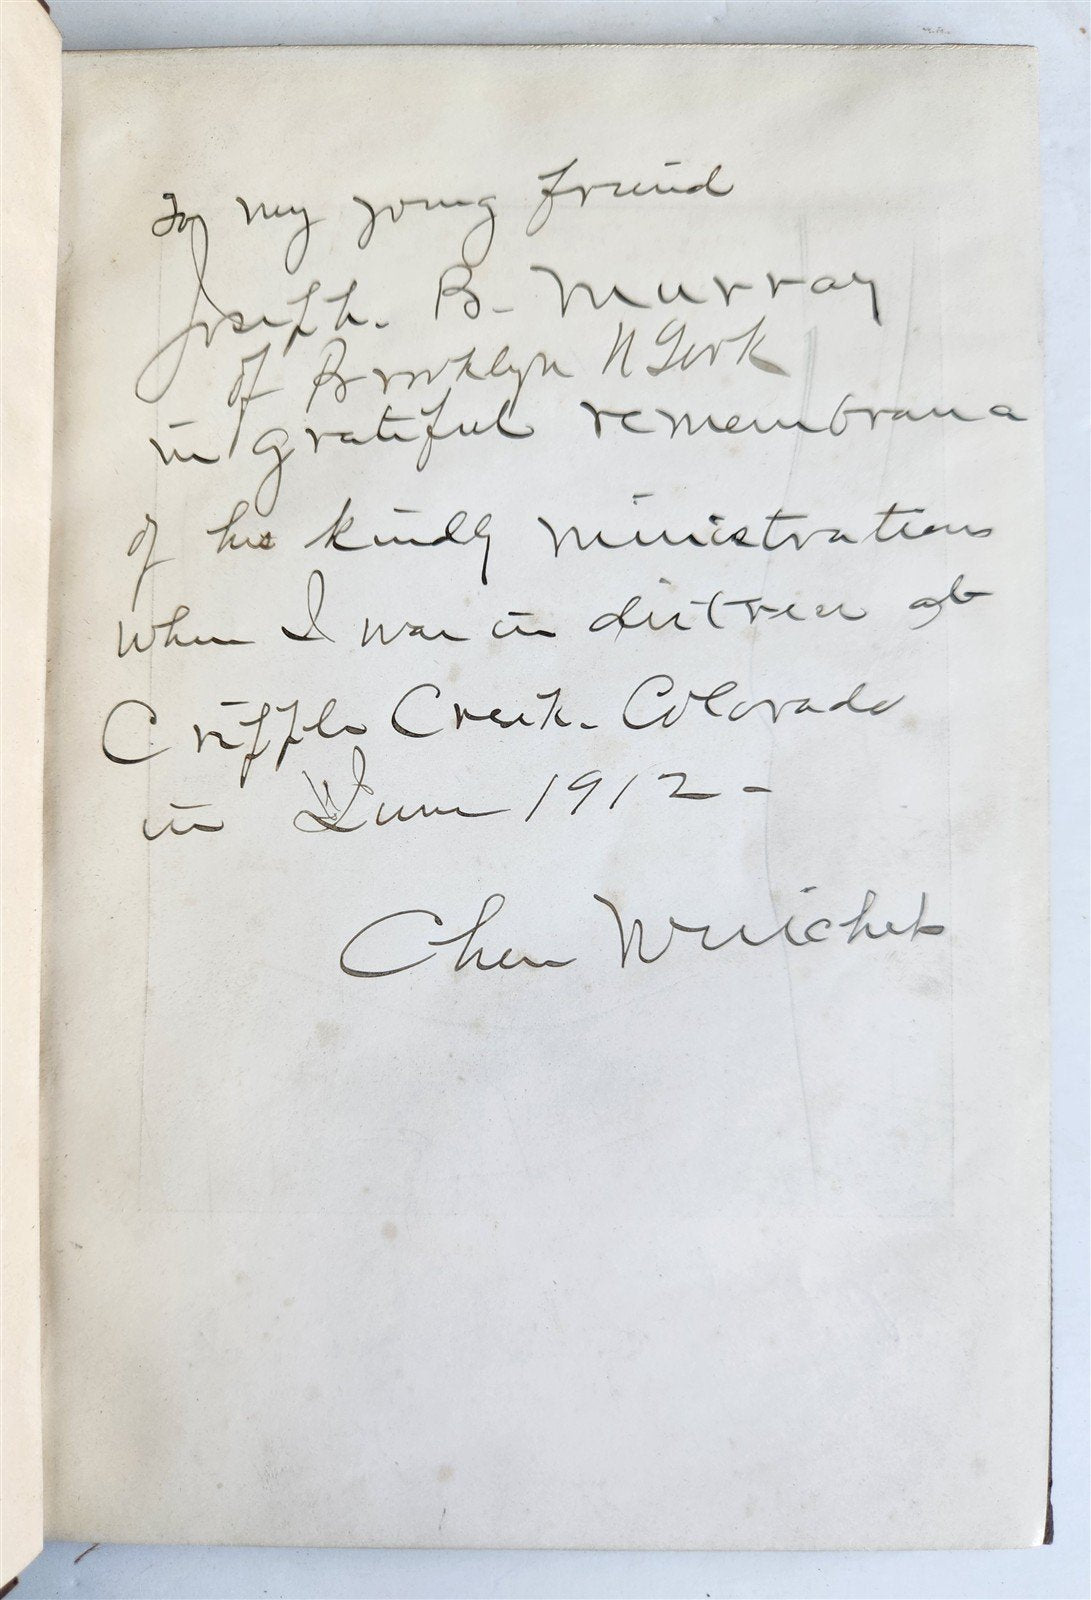 To my young friend
Joseph. B. Murray
of Brooklyn N York
in grateful remembrance
of his kindly ministrations
when I was in distress at
Cripple Creek. Colorado
in June 1912 -
Chas